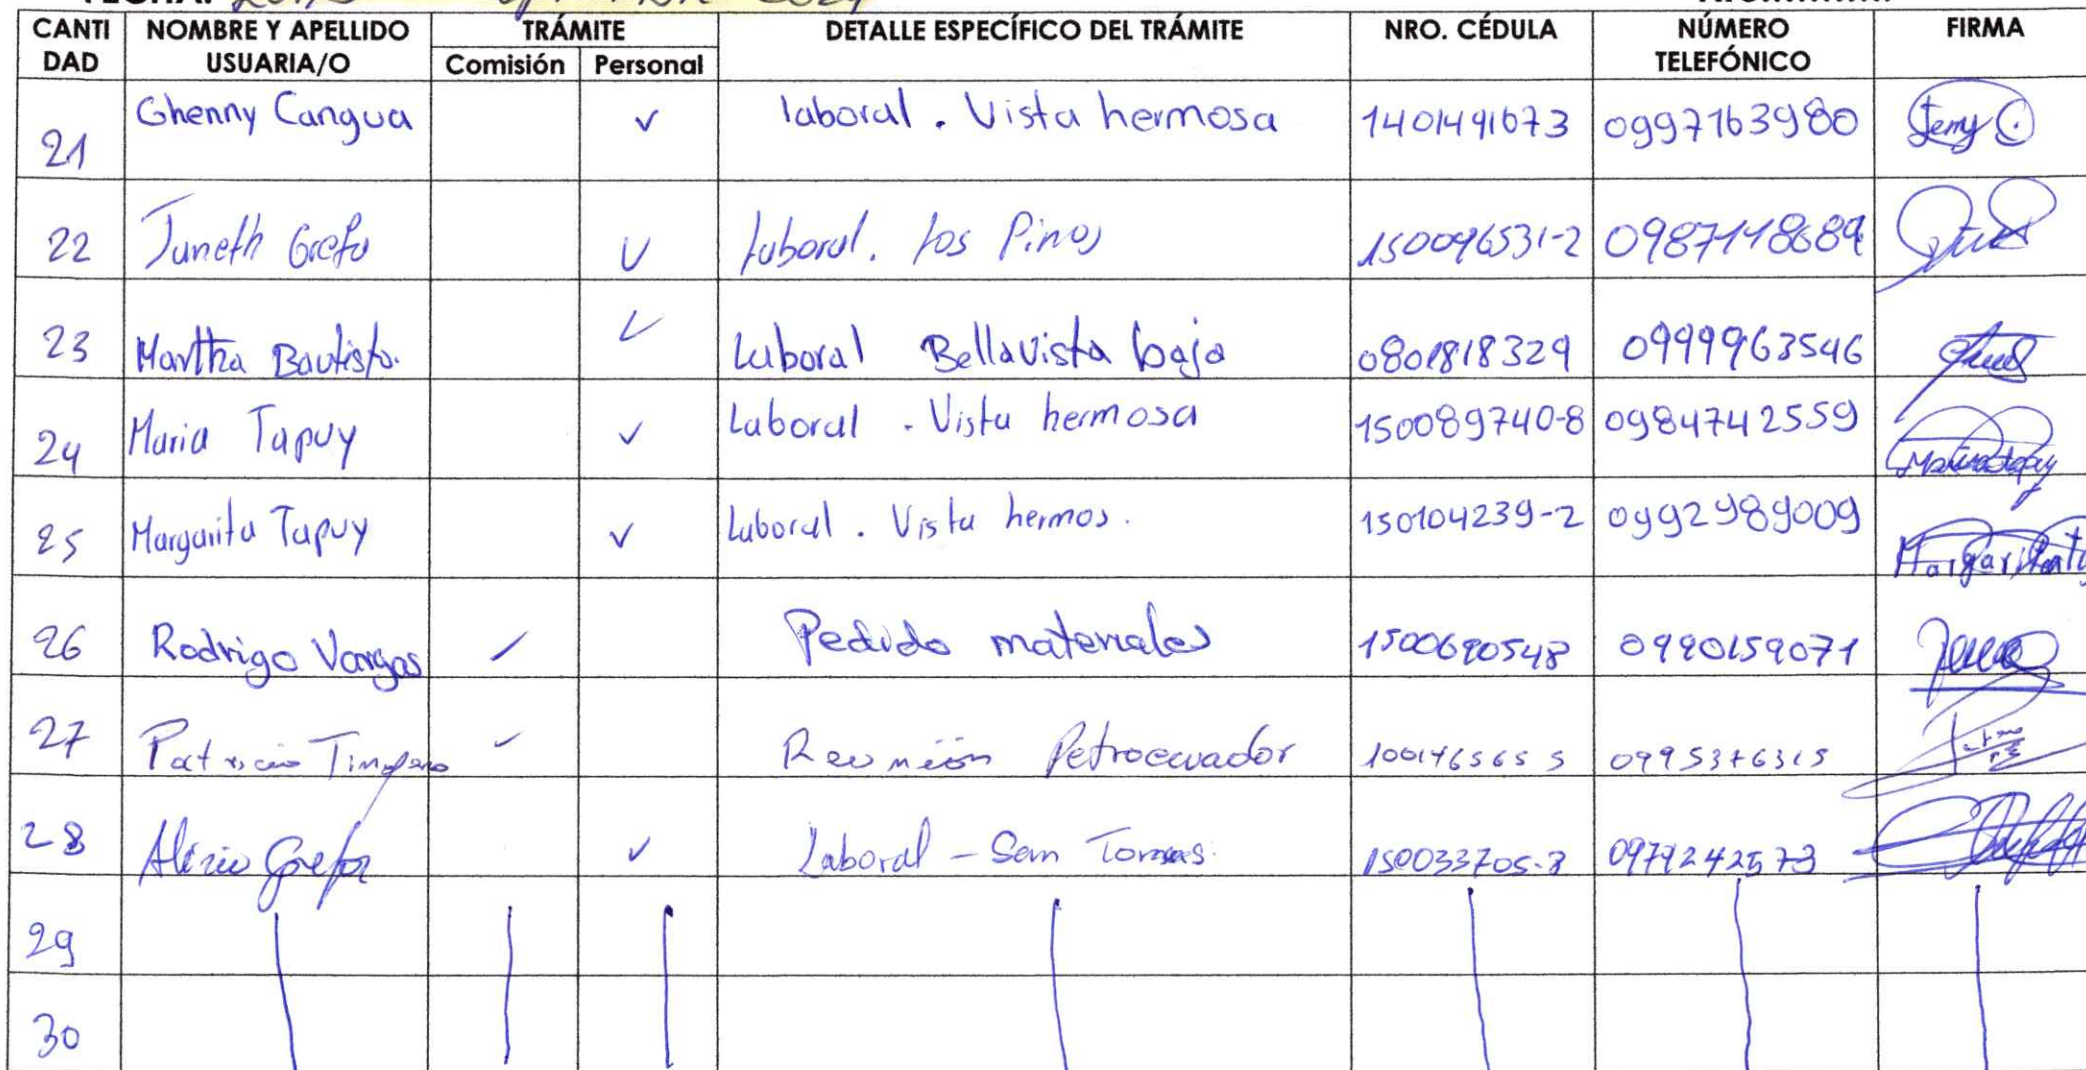 FECHA:
CANTI DAD | NOMBRE Y APELLIDO USUARIA/O | TRÁMITE | DETALLE ESPECÍFICO DEL TRÁMITE | NRO. CÉDULA | NÚMERO TELEFÓNICO | FIRMA
Comisión | Personal
21 | Ghenny Cangua | ✓ | laboral. Vista hermosa | 1401491673 | 0997163980 | Jenny C.
22 | Janeth Grefa | ✓ | laboral. los Pinos | 150096531-2 | 0987118689
23 | Martha Bautista. | ✓ | Laboral Bellavista baja | 0801818329 | 0999963546
24 | Maria Tapuy | ✓ | Laboral - Vista hermosa | 150089740-8 | 0984742559
25 | Margarita Tapuy | ✓ | Laboral. Vista hermos. | 150104239-2 | 0992989009
26 | Rodrigo Vargas | ✓ | Pedido materiales | 1500690548 | 0990159071
27 | Patricio | ✓ | Reunión Petroecuador | 1001765655 | 0995376315
28 | Alicia Grefa | ✓ | Laboral - San Tomas. | 150033705-3 | 0979242573
29
30